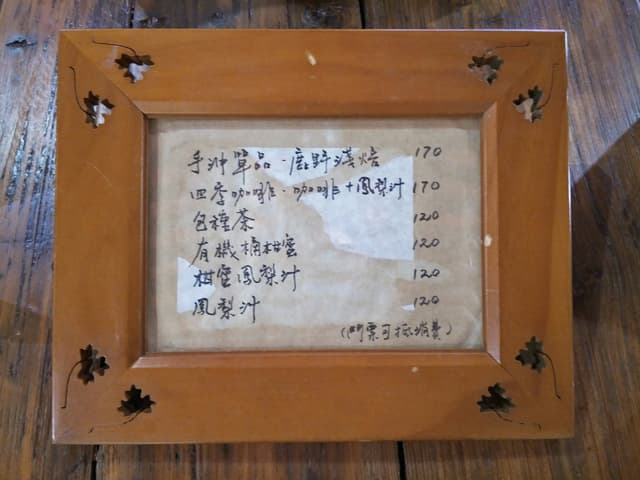 手沖單品·鹿野淺焙 170
四季咖啡·咖啡+鳳梨汁 170
包種茶 120
有機桶柑蜜 120
柑蜜鳳梨汁 120
鳳梨汁 120
(門票可抵消費)